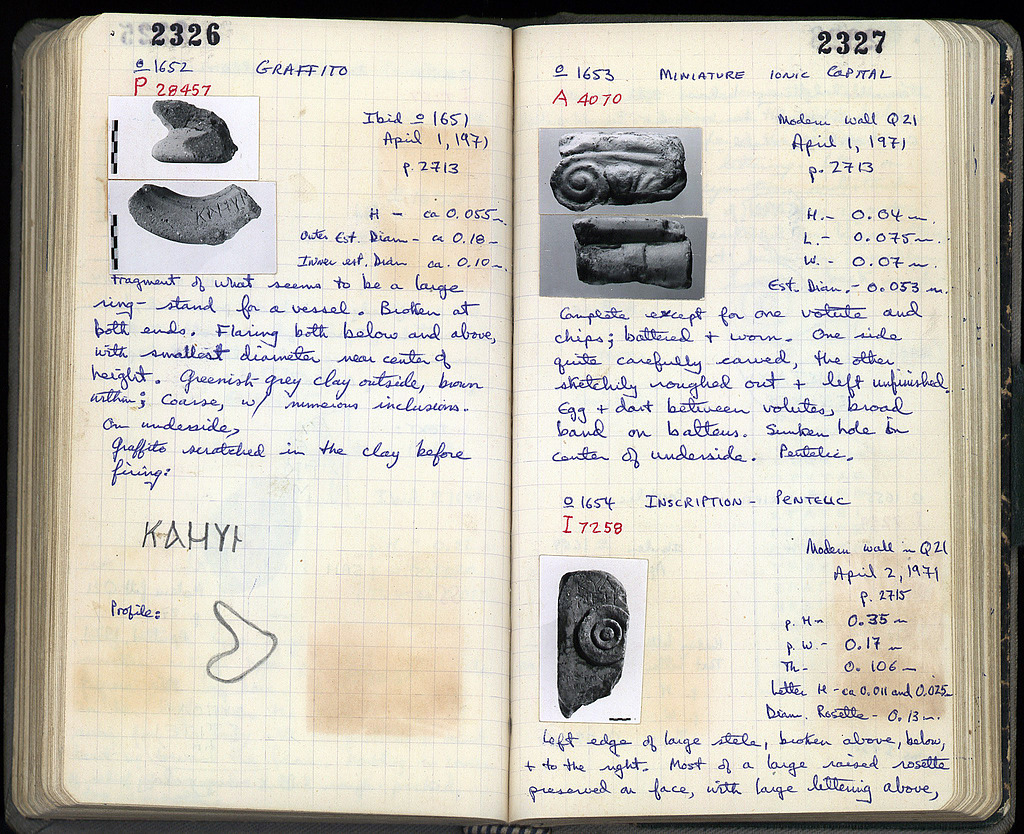 2326
o 1652 GRAFFITO
P 28457
Ibid o 1651
April 1, 1971
p. 2713
H - ca 0.055 m.
Outer Est. Diam - ca 0.18 -
Inner est. Diam ca. 0.10 m.
Fragment of what seems to be a large
ring-stand for a vessel. Broken at
both ends. Flaring both below and above,
with smallest diameter near center of
height. Greenish-grey clay outside, brown
within; coarse, w/ numerous inclusions.
On underside,
Graffito scratched in the clay before
firing:
Profile:
2327
o 1653 MINIATURE IONIC CAPITAL
A 4070
Modern Wall Q21
April 1, 1971
p. 2713
H. - 0.04 m.
L. - 0.075 m.
W. - 0.07 m.
Est. Diam. - 0.053 m.
Complete except for one volute and
chips; battered + worn. One side
quite carefully carved, the other
sketchily roughed out + left unfinished.
Egg + dart between volutes, broad
band on balteus. Sunken hole in
center of underside. Pentelic.
o 1654 INSCRIPTION - PENTELIC
I 7258
Modern wall in Q21
April 2, 1971
p. 2715
p. H - 0.35 m
p. W. - 0.17 m
Th - 0.106 -
Letter H - ca 0.011 and 0.025 -
Diam. Rosette - 0.13 m.
Left edge of large stele, broken above, below,
+ to the right. Most of a large raised rosette
preserved on face, with large lettering above,